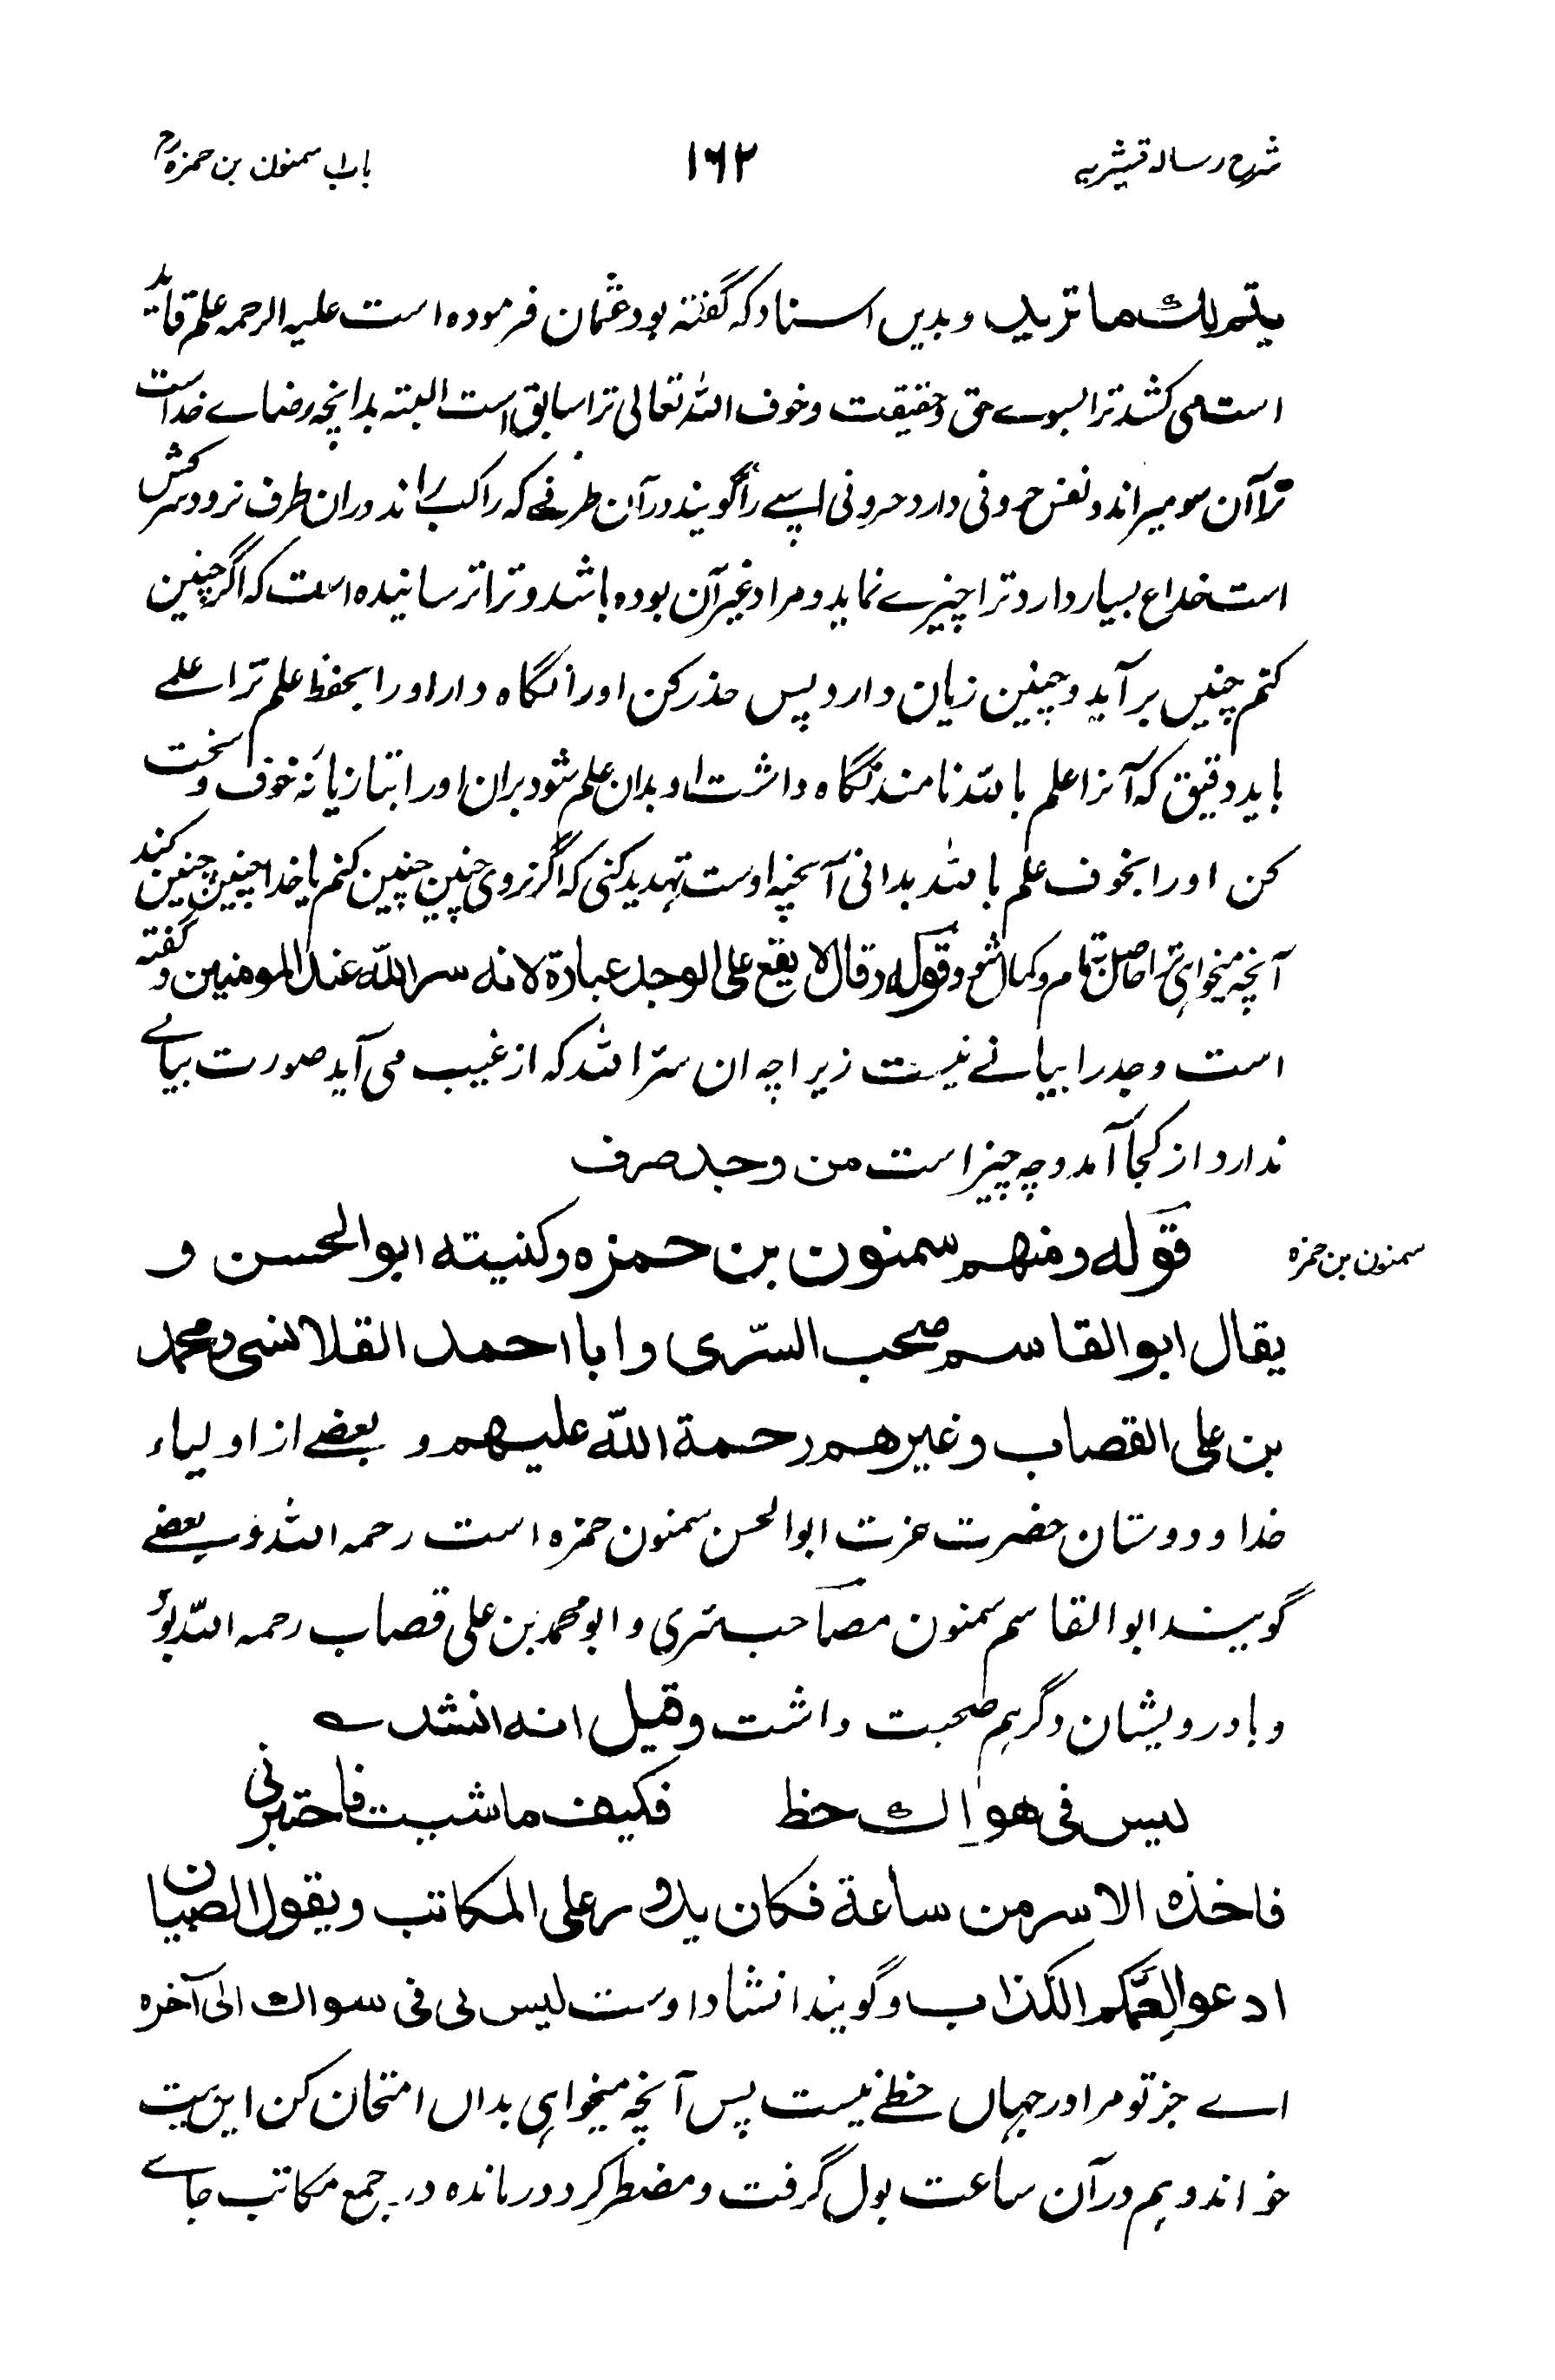 شرح رساله قشیریه
۱۶۲
باب سمنون بن حمزہ رح
یتم لك ما ترید وبدیں اسناد که گفته بود عثمان فرموده است علیه الرحمه علم قاید
است می کشد ترا بسوے حق وحقیقت وخوف الله تعالی ترا سابق است البته بدانچه رضاے خداست
ترا آن سو میراند ونفس حرونی دارد حرونی اسپے را گویند در آن طرفے که راکب راند دران طرف نرود سرکش
است خداع بسیار دارد ترا چیزے نماید ومراد غیر آن بوده باشد وترا ترسانیده است که اگر چنین
کنم چنیں برآید وچنین زیان دارد پس حذر کن اورا نگاه دار اورا بحفظ علم ترا علمے
باید دقیق که آنرا علم بالله نامند نگاه داشت او بدان علم شود بران اورا بتازیانۂ خوف وسخت
کن اورا بخوف علم بالله بدانی آنچه اوست تهدید کنی که اگر نروی چنین چنین کنم یا خدا چنین چنین کند
آنچه میخواهی ترا حاصل بتمام وکمال شود قوله وقال لا یقع علی الوجد عبارة لانه سر الله عند المومنین وگفته
است وجد را بیانے نیست زیراچه ان سرّ الله که از غیب می آید صورت بیانے
ندارد از کجا آمد وچه چیز است من وجد صرف
سمنون بن حمزه
قوله ومنهم سمنون بن حمزه وکنیته ابو الحسن و
یقال ابو القاسم صحب السّری وابا احمد القلانسی ومحمد
بن علی القصاب وغیرهم رحمة الله علیهم و بعضے از اولیاء
خدا ودوستان حضرت عزت ابو الحسن سمنون حمزه است رحمه الله وبعضے
گویند ابو القاسم سمنون مصاحب سری وابو محمد بن علی قصاب رحمه الله بود
وبا درویشان دگر هم صحبت داشت وقیل انه انشد ؎
لیس فی هواك حظ فکیف ما شیت فاختبرنی
فاخذه الاسر من ساعة فکان یدور علی المکاتب ویقول الصبیان
ادعوا لعمّکم الکذاب وگویند انشاد اوست لیس لی فی سواك الی آخره
اے جز تو مرا در جهاں حظے نیست پس آنچه میخواهی بداں امتحان کن ایں بیت
خواند وهم در آن ساعت بول گرفت ومضطر کرد درمانده در جمع مکاتب جاے